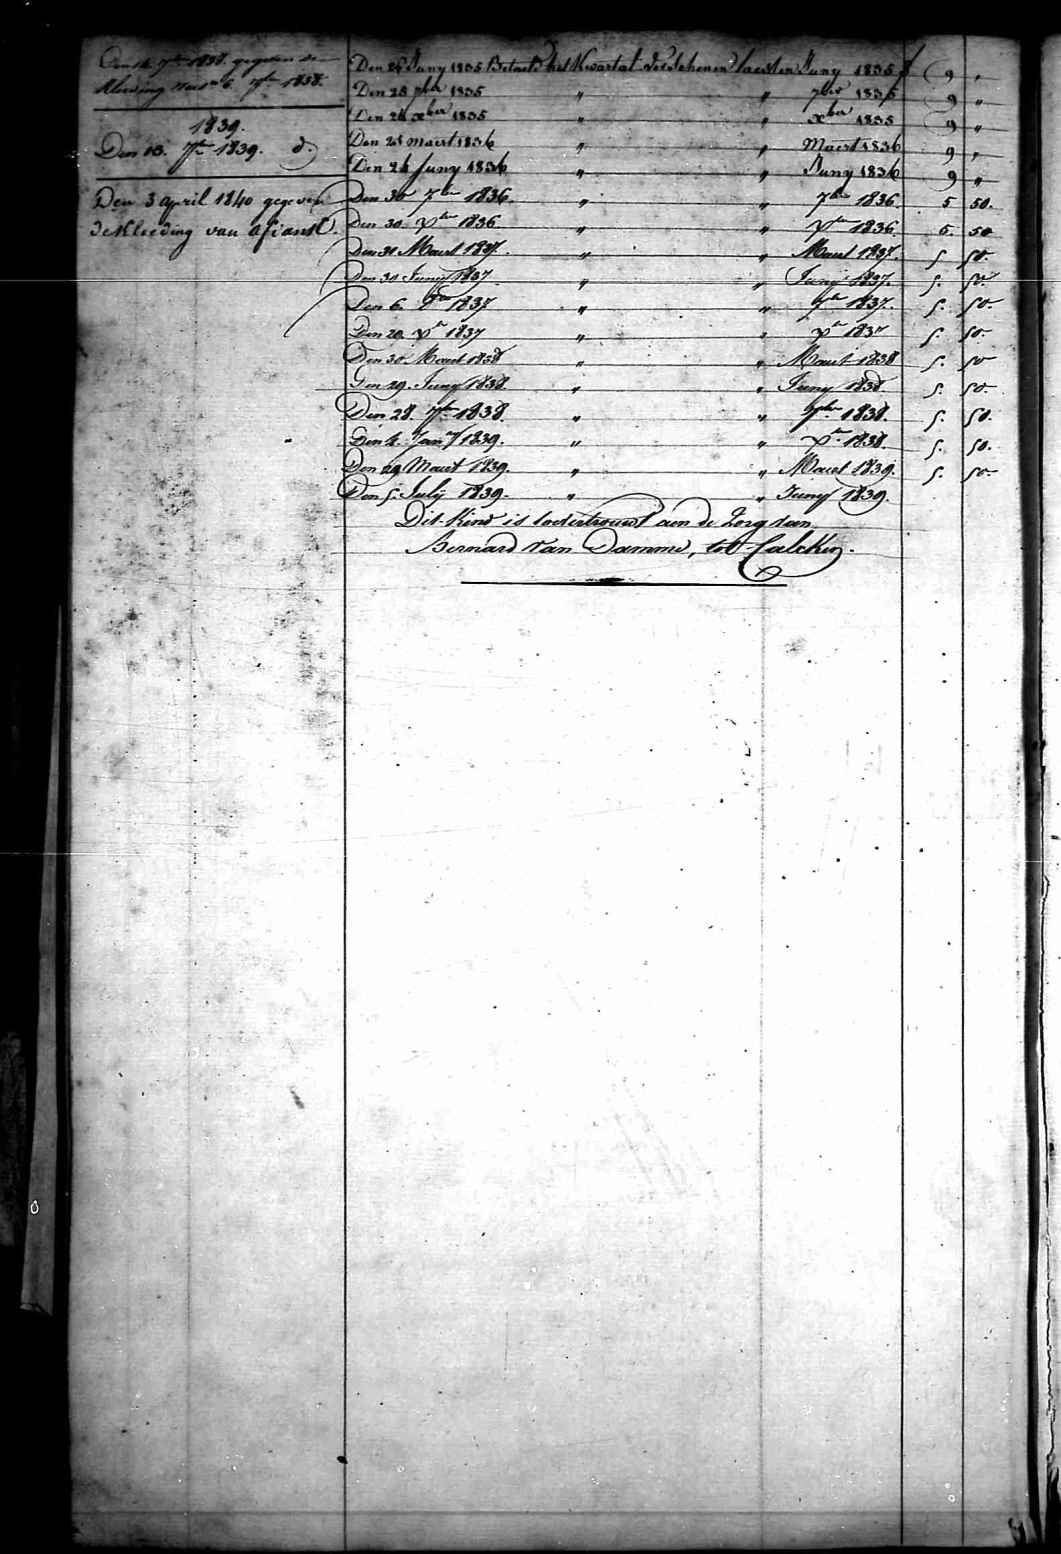 Den 14 7bre 1838. gegeven de
kleeding 7bre 1838.
1839.
Den 13. 7bre 1839. d.
Den 3 april 1840 gegeven
de kleeding van afiank.
Den 24 Juny 1835 Betaelt het Kwartal verschenen laesten Juny 1835 f 9 "
Den 28 7ber 1835 " " 7ber 1835 9 "
Den 24 xber 1835 " " xber 1835 9 "
Den 25 maert 1836 " " Maert 1836 9 "
Den 24 Juny 1836 " " Juny 1836 9 "
Den 30 7bre 1836 " " 7bre 1836. 5 50.
Den 30. Xbre 1836 " " Xbre 1836. 5. 50
Den 31 Maert 1837. " " Maert 1837. 5 50.
Den 30 Juny 1837 " " Juny 1837. 5. 50.
Den 6. 8bre 1837 " " 7bre 1837. 5. 50.
Den 20. Xbre 1837 " " Xbre 1837 5. 50.
Den 30. Maert 1838 " " Maert 1838 5. 50
Den 29. Juny 1838. " " Juny 1838. 5. 50.
Den 28. 7bre 1838. " " 7bre 1838. 5. 50.
Den 4. Jany 1839. " " Xbre 1838. 5. 50.
Den 29 Maert 1839. " " Maert 1839. 5. 50
Den 5. July 1839. " " Juny 1839.
Dit kind is toevertrouwt aen de zorg van
Bernard Van Damme, tot Calcken.